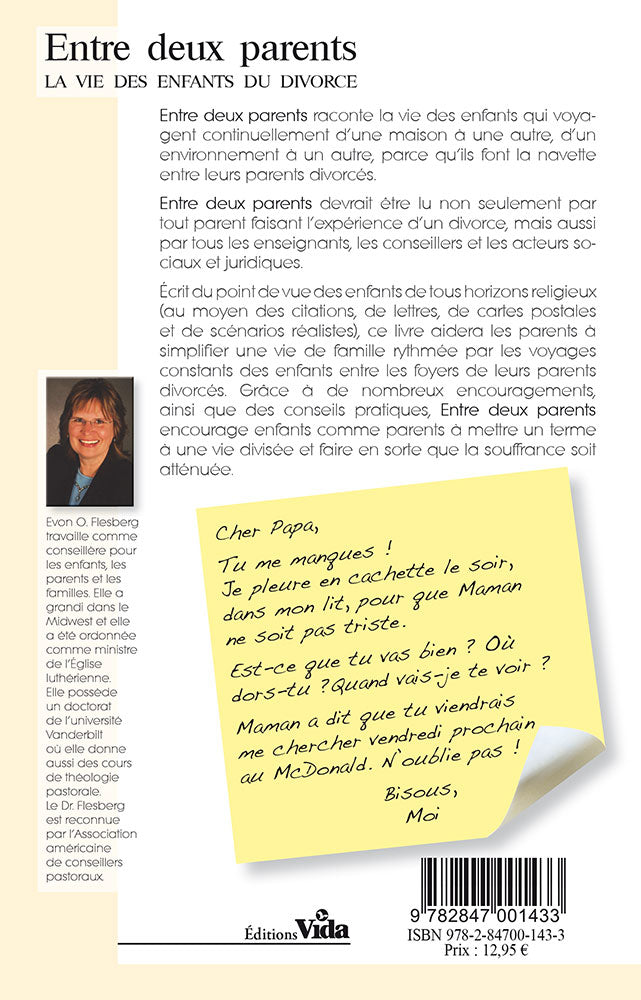 Entre deux parents
LA VIE DES ENFANTS DU DIVORCE
Entre deux parents raconte la vie des enfants qui voya-
gent continuellement d'une maison à une autre, d'un
environnement à un autre, parce qu'ils font la navette
entre leurs parents divorcés.
Entre deux parents devrait être lu non seulement par
tout parent faisant l'expérience d'un divorce, mais aussi
par tous les enseignants, les conseillers et les acteurs so-
ciaux et juridiques.
Écrit du point de vue des enfants de tous horizons religieux
(au moyen des citations, de lettres, de cartes postales
et de scénarios réalistes), ce livre aidera les parents à
simplifier une vie de famille rythmée par les voyages
constants des enfants entre les foyers de leurs parents
divorcés. Grâce à de nombreux encouragements,
ainsi que des conseils pratiques, Entre deux parents
encourage enfants comme parents à mettre un terme
à une vie divisée et faire en sorte que la souffrance soit
atténuée.
Evon O. Flesberg
travaille comme
conseillère pour
les enfants, les
parents et les
familles. Elle a
grandi dans le
Midwest et elle
a été ordonnée
comme ministre
de l'Église
luthérienne.
Elle possède
un doctorat
de l'université
Vanderbilt
où elle donne
aussi des cours
de théologie
pastorale.
Le Dr. Flesberg
est reconnue
par l'Association
américaine
de conseillers
pastoraux.
Cher Papa,
Tu me manques !
Je pleure en cachette le soir,
dans mon lit, pour que Maman
ne soit pas triste.
Est-ce que tu vas bien ? Où
dors-tu ? Quand vais-je te voir ?
Maman a dit que tu viendrais
me chercher vendredi prochain
au McDonald. N'oublie pas !
Bisous,
Moi
Éditions Vida
9 782847 001433
ISBN 978-2-84700-143-3
Prix : 12,95 €